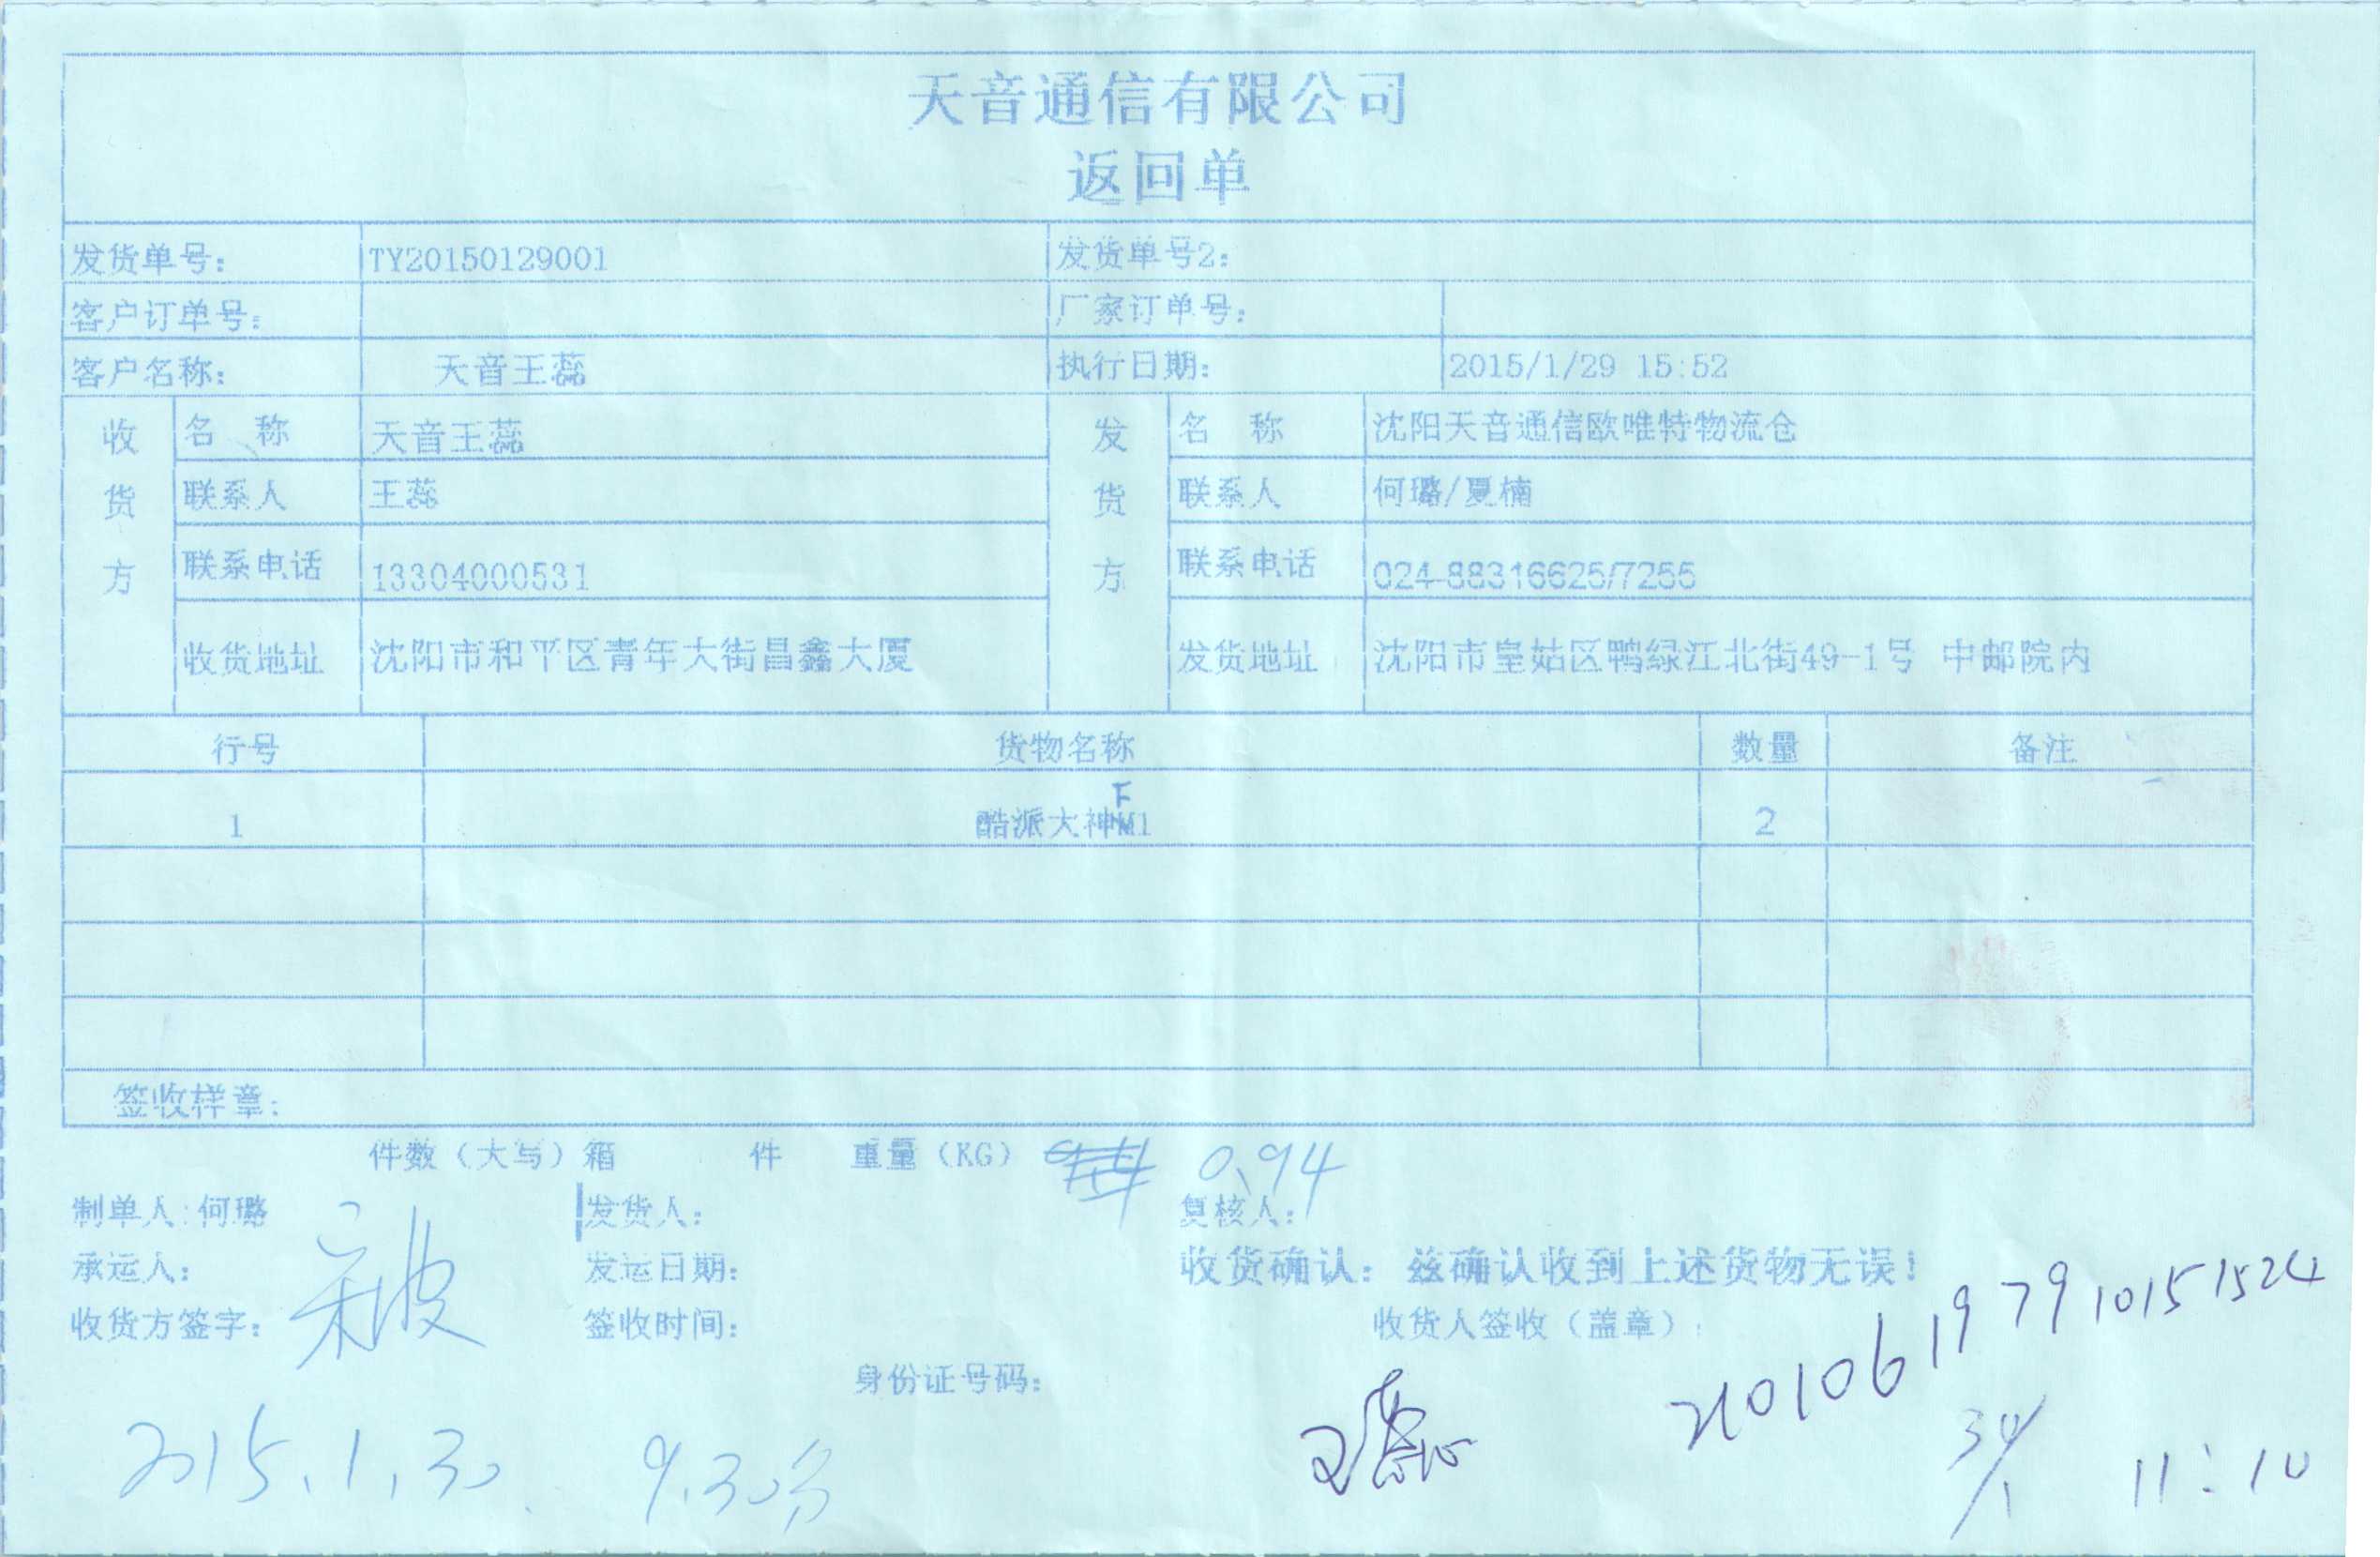 天音通信有限公司
返回单
发货单号： TY20150129001 发货单号2：
客户订单号： 厂家订单号：
客户名称： 天音王蕊 执行日期： 2015/1/29 15:52
收货方 名 称 天音王蕊 发货方 名 称 沈阳天音通信欧唯特物流仓
联系人 王蕊 联系人 何璐/夏楠
联系电话 13304000531 联系电话 024-88316625/7255
收货地址 沈阳市和平区青年大街昌鑫大厦 发货地址 沈阳市皇姑区鸭绿江北街49-1号 中邮院内
行号 货物名称 数量 备注
F
1 酷派大神M1 2
签收样章：
件数（大写）箱 件 重量（KG） 0.94
制单人：何璐 发货人： 复核人：
承运人： 发运日期： 收货确认： 兹确认收到上述货物无误！
收货方签字： 签收时间： 收货人签收（盖章）：
身份证号码：
210106197910151524
王蕊
2015.1.30 9.30分
30/1 11:10